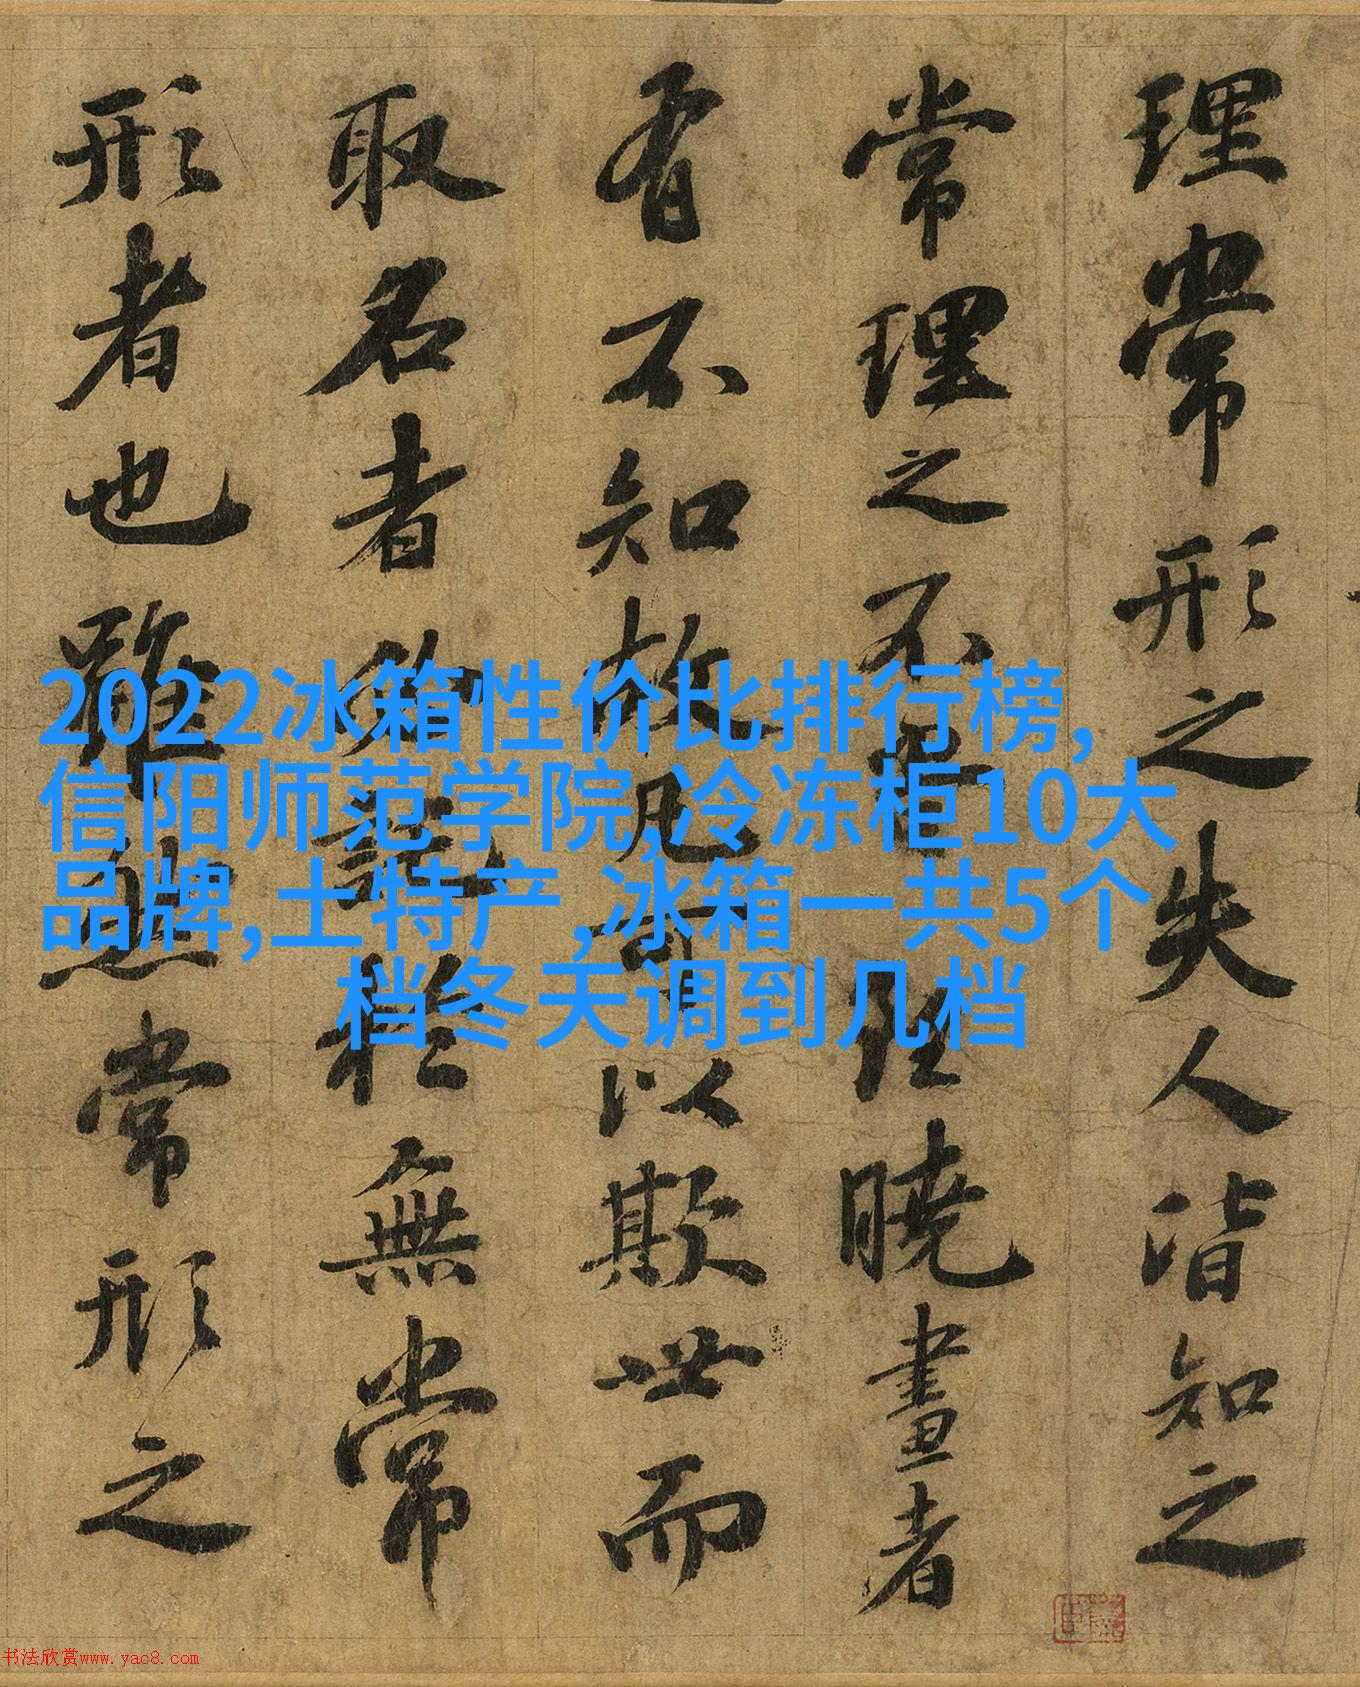 理常形之失人皆知之
常理之不 曉畫者
有不知故凡可以欺世而
取名者必託於無常
形者也雖然常形之
2022冰箱性价比排行榜,
信阳师范学院,冷冻柜10大
品牌,土特产 ,冰箱一共5个
档冬天调到几档
书法欣赏www.yac8.com